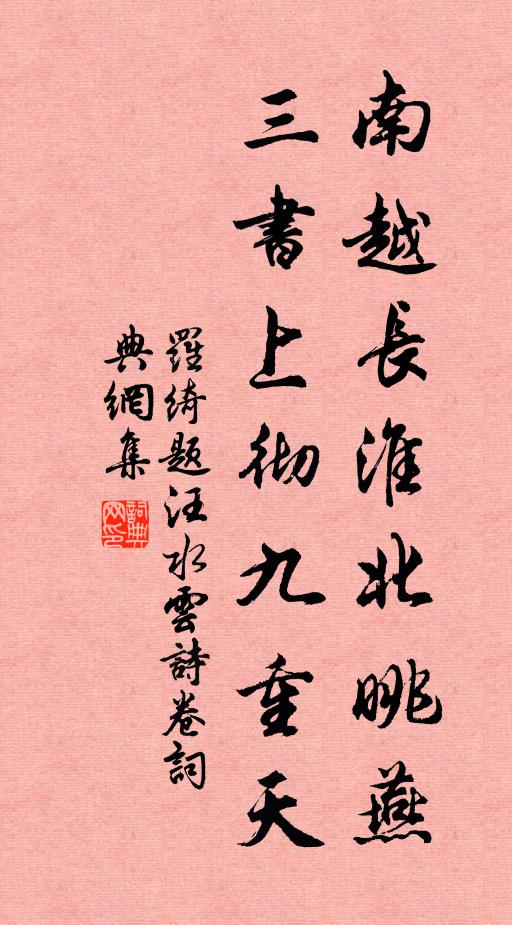 南越長淮北眺燕
三書上彻九重天
羅綺題汪水雲詩卷詞
典網集
詞典网印